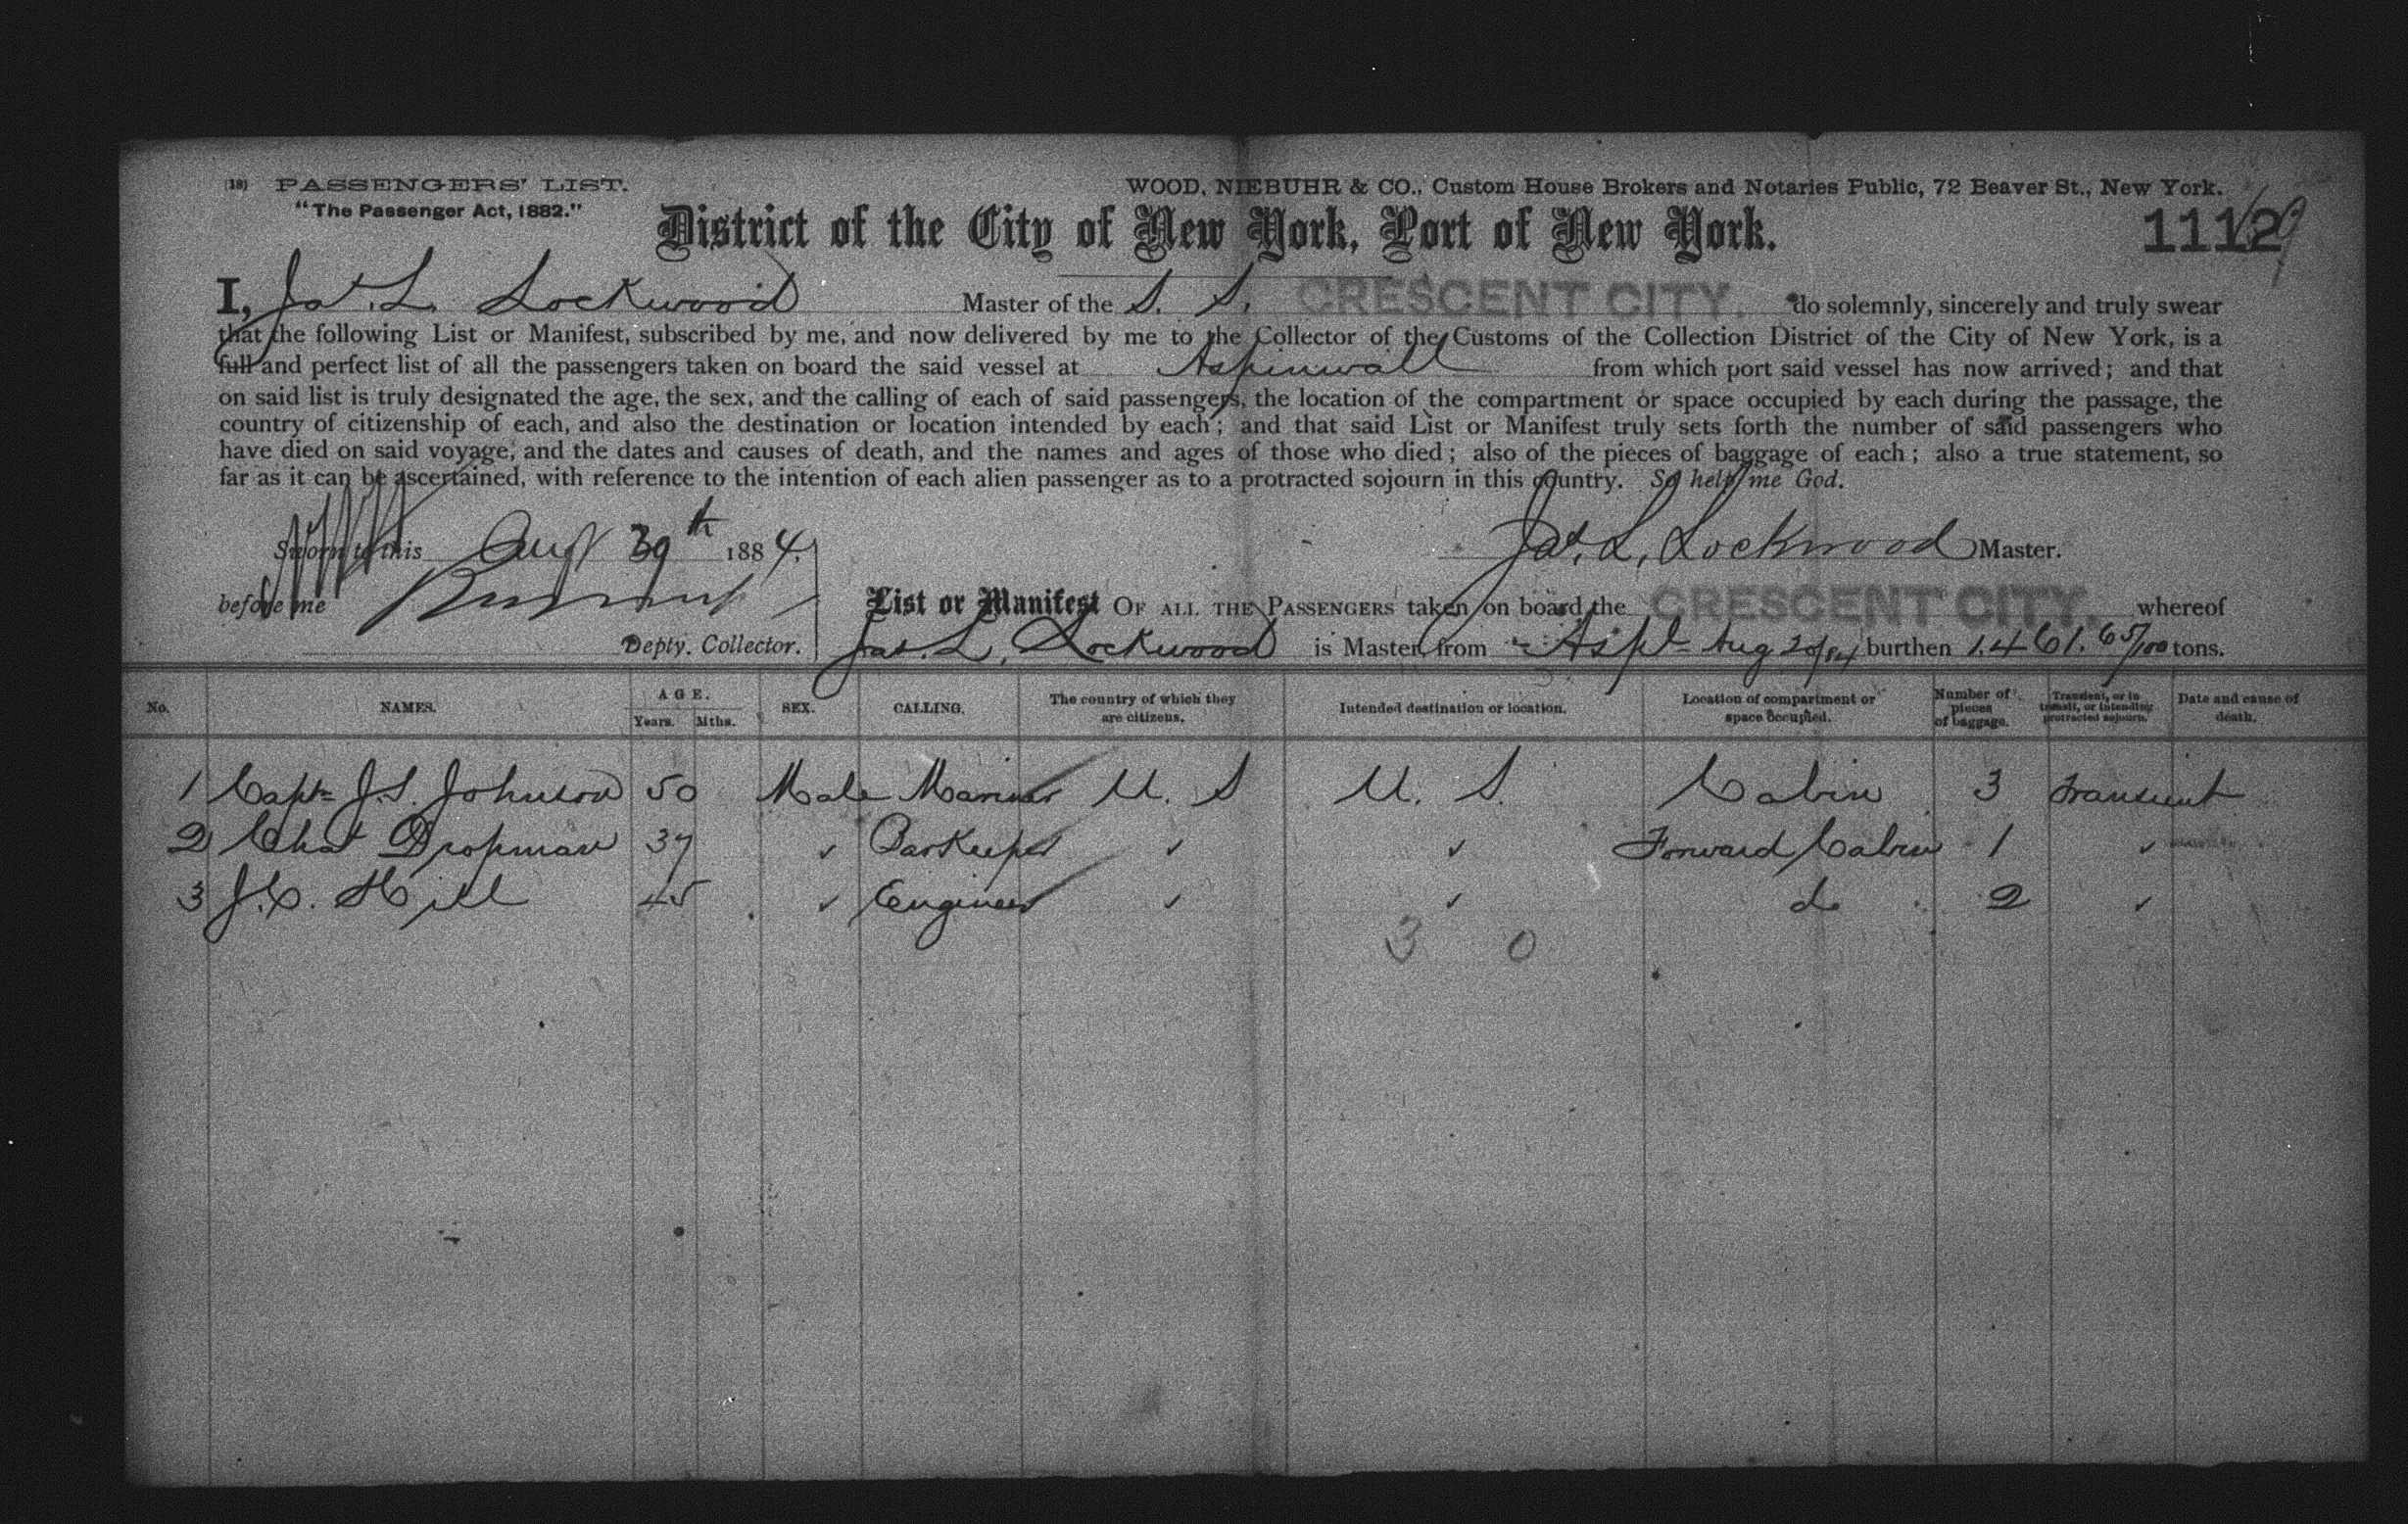 (18) PASSENGERS' LIST. WOOD, NIEBUHR & CO., Custom House Brokers and Notaries Public, 72 Beaver St., New York.
"The Passenger Act, 1882."
District of the City of New York, Port of New York. 1112
I, Jas. L. Lockwood Master of the S. S. CRESCENT CITY. do solemnly, sincerely and truly swear
that the following List or Manifest, subscribed by me, and now delivered by me to the Collector of the Customs of the Collection District of the City of New York, is a
full and perfect list of all the passengers taken on board the said vessel at Aspinwall from which port said vessel has now arrived; and that
on said list is truly designated the age, the sex, and the calling of each of said passengers, the location of the compartment or space occupied by each during the passage, the
country of citizenship of each, and also the destination or location intended by each; and that said List or Manifest truly sets forth the number of said passengers who
have died on said voyage, and the dates and causes of death, and the names and ages of those who died; also of the pieces of baggage of each; also a true statement, so
far as it can be ascertained, with reference to the intention of each alien passenger as to a protracted sojourn in this country. So help me God.
Sworn to this Aug 1884. Jas. L. Lockwood Master.
before me List or Manifest OF ALL THE PASSENGERS taken on board the CRESCENT CITY. whereof
Depty. Collector. Jas. L. Lockwood is Master, from Aspl Aug 20/84 burthen 1.461.65/100 tons.
No. NAMES. AGE. Years. Mths. SEX. CALLING. The country of which they are citizens. Intended destination or location. Location of compartment or space occupied. Number of pieces of baggage. Transient, or in transit, or intending protracted sojourn. Date and cause of death.
1 Capt J.S. Johnson 50 Male Mariner U. S U. S. Cabin 3 Transient
2 Chas Dropman 37 ✓ Barkeeper ✓ ✓ Forward Cabin 1 ✓
3 J.C. Hill 45 ✓ Engineer ✓ ✓ do 2 ✓
3 0